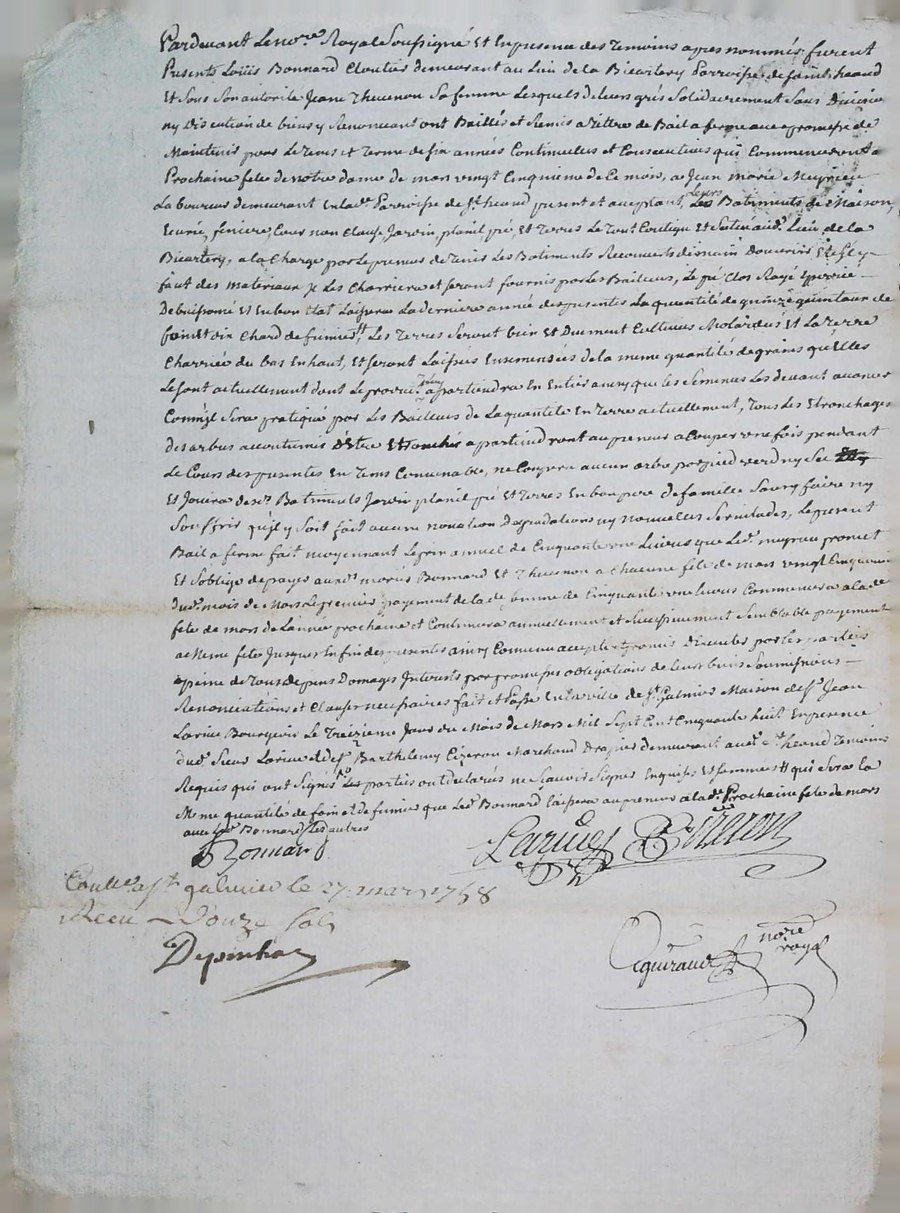 Pardevant Le no.re Royal Soussigné Et En presence des Temoins apres nommés, furent
Presents Loüis Bonnard Cloutier demeurant au Lieu de la Bicartery Parroisse de saint heand
Et Sous Son autorité Jeane Thevenon Sa femme Lesquels de leurs grés Solidairement Sans Division
ny Discution de biens y Renonceant ont Baillés et Remis a Tittre de Bail a ferme avec promesse de
Maintenir pour Le Tems et Terme de six années Continuelles et Consecutives qui Commenceront a
Prochaine fete de notre dame de mars vingt Cinquieme de Ce mois, a Jean marie Meyrieu
Laboureur demeurant En lad.e Parroisse de S.t heand present et acceptant, Leurs Batiments de Maison,
Ecurie, feniere, Cour non Clause Jardin, planil, pré, et Terres Le Tout Contigu Et Situé aud. Lieu de la
Bicartery, a la Charge par Le preneur de Tenir Les Batiments Recouverts de main Douvrier Et S'il y
faut des materiaux Je Les Charriera et Seront fournis par Les Bailleurs, Le pré Clos Rayé
Debuissoné et En bon Etat Laissera La derniere année des presentes La quantité de quinze quintaux de
foin et dix Chard de fumier, Les Terres Seront bien Et Duement Cultivées Et La Terre
Charriée du bas En haut, Et Seront Laissées Ensemensées de la meme quantité de grains qu'Elles
Le Sont actuellement dont Le provenu apartiendra En Entier ainsy que les Semences Les devant avancer
Comme Sera pratiqué par Les Bailleurs de La quantité En Terre actuellement, Tous Les Etronchages
des arbres accoutumés D'Etre Etronchés apartiendront au preneur a Couper une fois pendant
Le Cours des presentes En Tems Convenable, ne Coupera aucun arbre par pied verd ny Sec
Et Jouira desd. Batiments Jardin planil pré Et Terres En bon pere de famille Sans y faire ny
Souffrir qu'il y Soit fait aucune novation Degradations ny nouvelles Servitudes, Le present
Bail a ferme fait moyennant Le prix annuel de Cinquante une Livres que Led. meyrieu promet
Et Soblige de payer auxd. mariés Bonnard Et Thevenon a Chacune fete de mars vingt Cinquieme
dud. mois de Mars Le premier payement de lad.e Somme de Cinquante une livres Commencera a lad.e
fete de mars de Lannée prochaine et Continuera annuellement et Successivement Semblable payement
a meme fete Jusques En fin des presentes ainsy Convenu accepté et promis Executer par Les parties
a peine de Tous depens Domages Interests par promesses obligations de leurs biens Soumissions
Renonciations et Clauses necessaires fait et Passé En la ville de S.t Galmier Maison de S.r Jean
Larive Bourgeois Le Treizieme Jour du Mois de Mars Mil Sept Cent Cinquante huit En presence
dud. Sieur Larive et de S.r Barthelemy Cizeron Marchand Drapier demeurant aud. S.t heand Temoins
Requis qui ont Signés Les parties ont declarés ne Scavoir Signer Enquises Et Sommées # qui Sera la
Meme quantité de foin et de fumier que Led. Bonnard Laissera au preneur a lad.e Prochaine fete de mars
avec Led. Bonnard Led. autres
Bonnard
Larive Cizeron
Con.lle a S.t galmier le 27 mars 1758
Receu Douze Sols
Depinhac
no.re royal